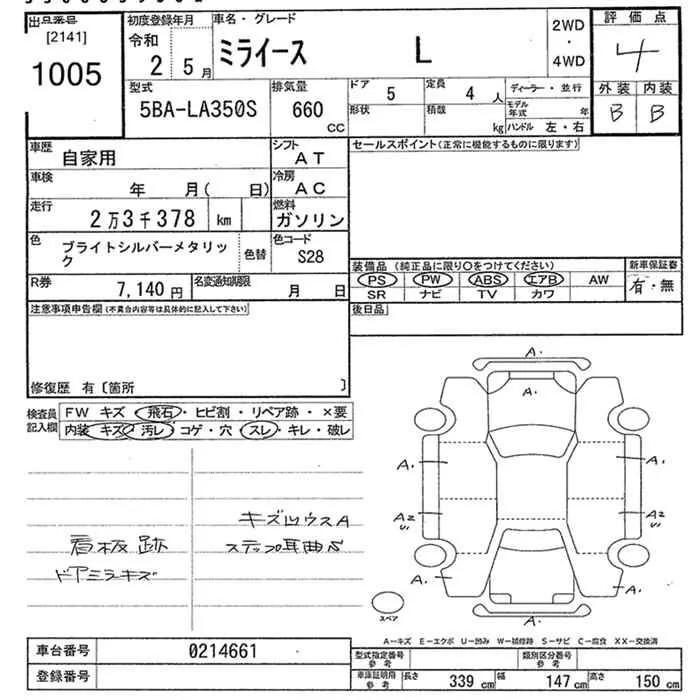 出品番号
[2141]
1005
初度登録年月
令和
2 5月
車名・グレード
ミライース L
2WD
・
4WD
評価点
4
外装 内装
B B
型式
5BA-LA350S
排気量
660
CC
ドア 5
定員 4 人
ディーラー・並行
形状
積載 kg
モデル年式 年
ハンドル 左・右
車歴 自家用
シフト AT
セールスポイント(正常に機能するものに限ります)
車検 年 月( 日)
冷房 AC
走行 2万3千378 km
燃料 ガソリン
色 ブライトシルバーメタリック
色替
色コード S28
装備品 (純正品に限り○をつけてください)
新車保証書
PS PW ABS エアB AW
有・無
SR ナビ TV カワ
R券 7,140円
名変通知期限 月 日
後日品
注意事項申告欄(不具合内容等は具体的に記入して下さい)
修復歴 有〔箇所 〕
検査員記入欄
FW キズ・飛石・ヒビ割・リペア跡・×要
内装 キズ・汚レ・コゲ・穴・スレ・キレ・破レ
看板跡
ドアミラキズ
キズ凹ウスA
ステップ耳曲り
A・
A・
A・ A・
A2 A2
A・ A・
A・
スペア
A−キズ E−エクボ U−凹み W−補修跡 S−サビ C−腐食 XX−交換済
車台番号 0214661
登録番号
型式指定番号
参考
類別区分番号
参考
車庫証明用
参考
長さ 339 cm 幅 147 cm 高さ 150 cm